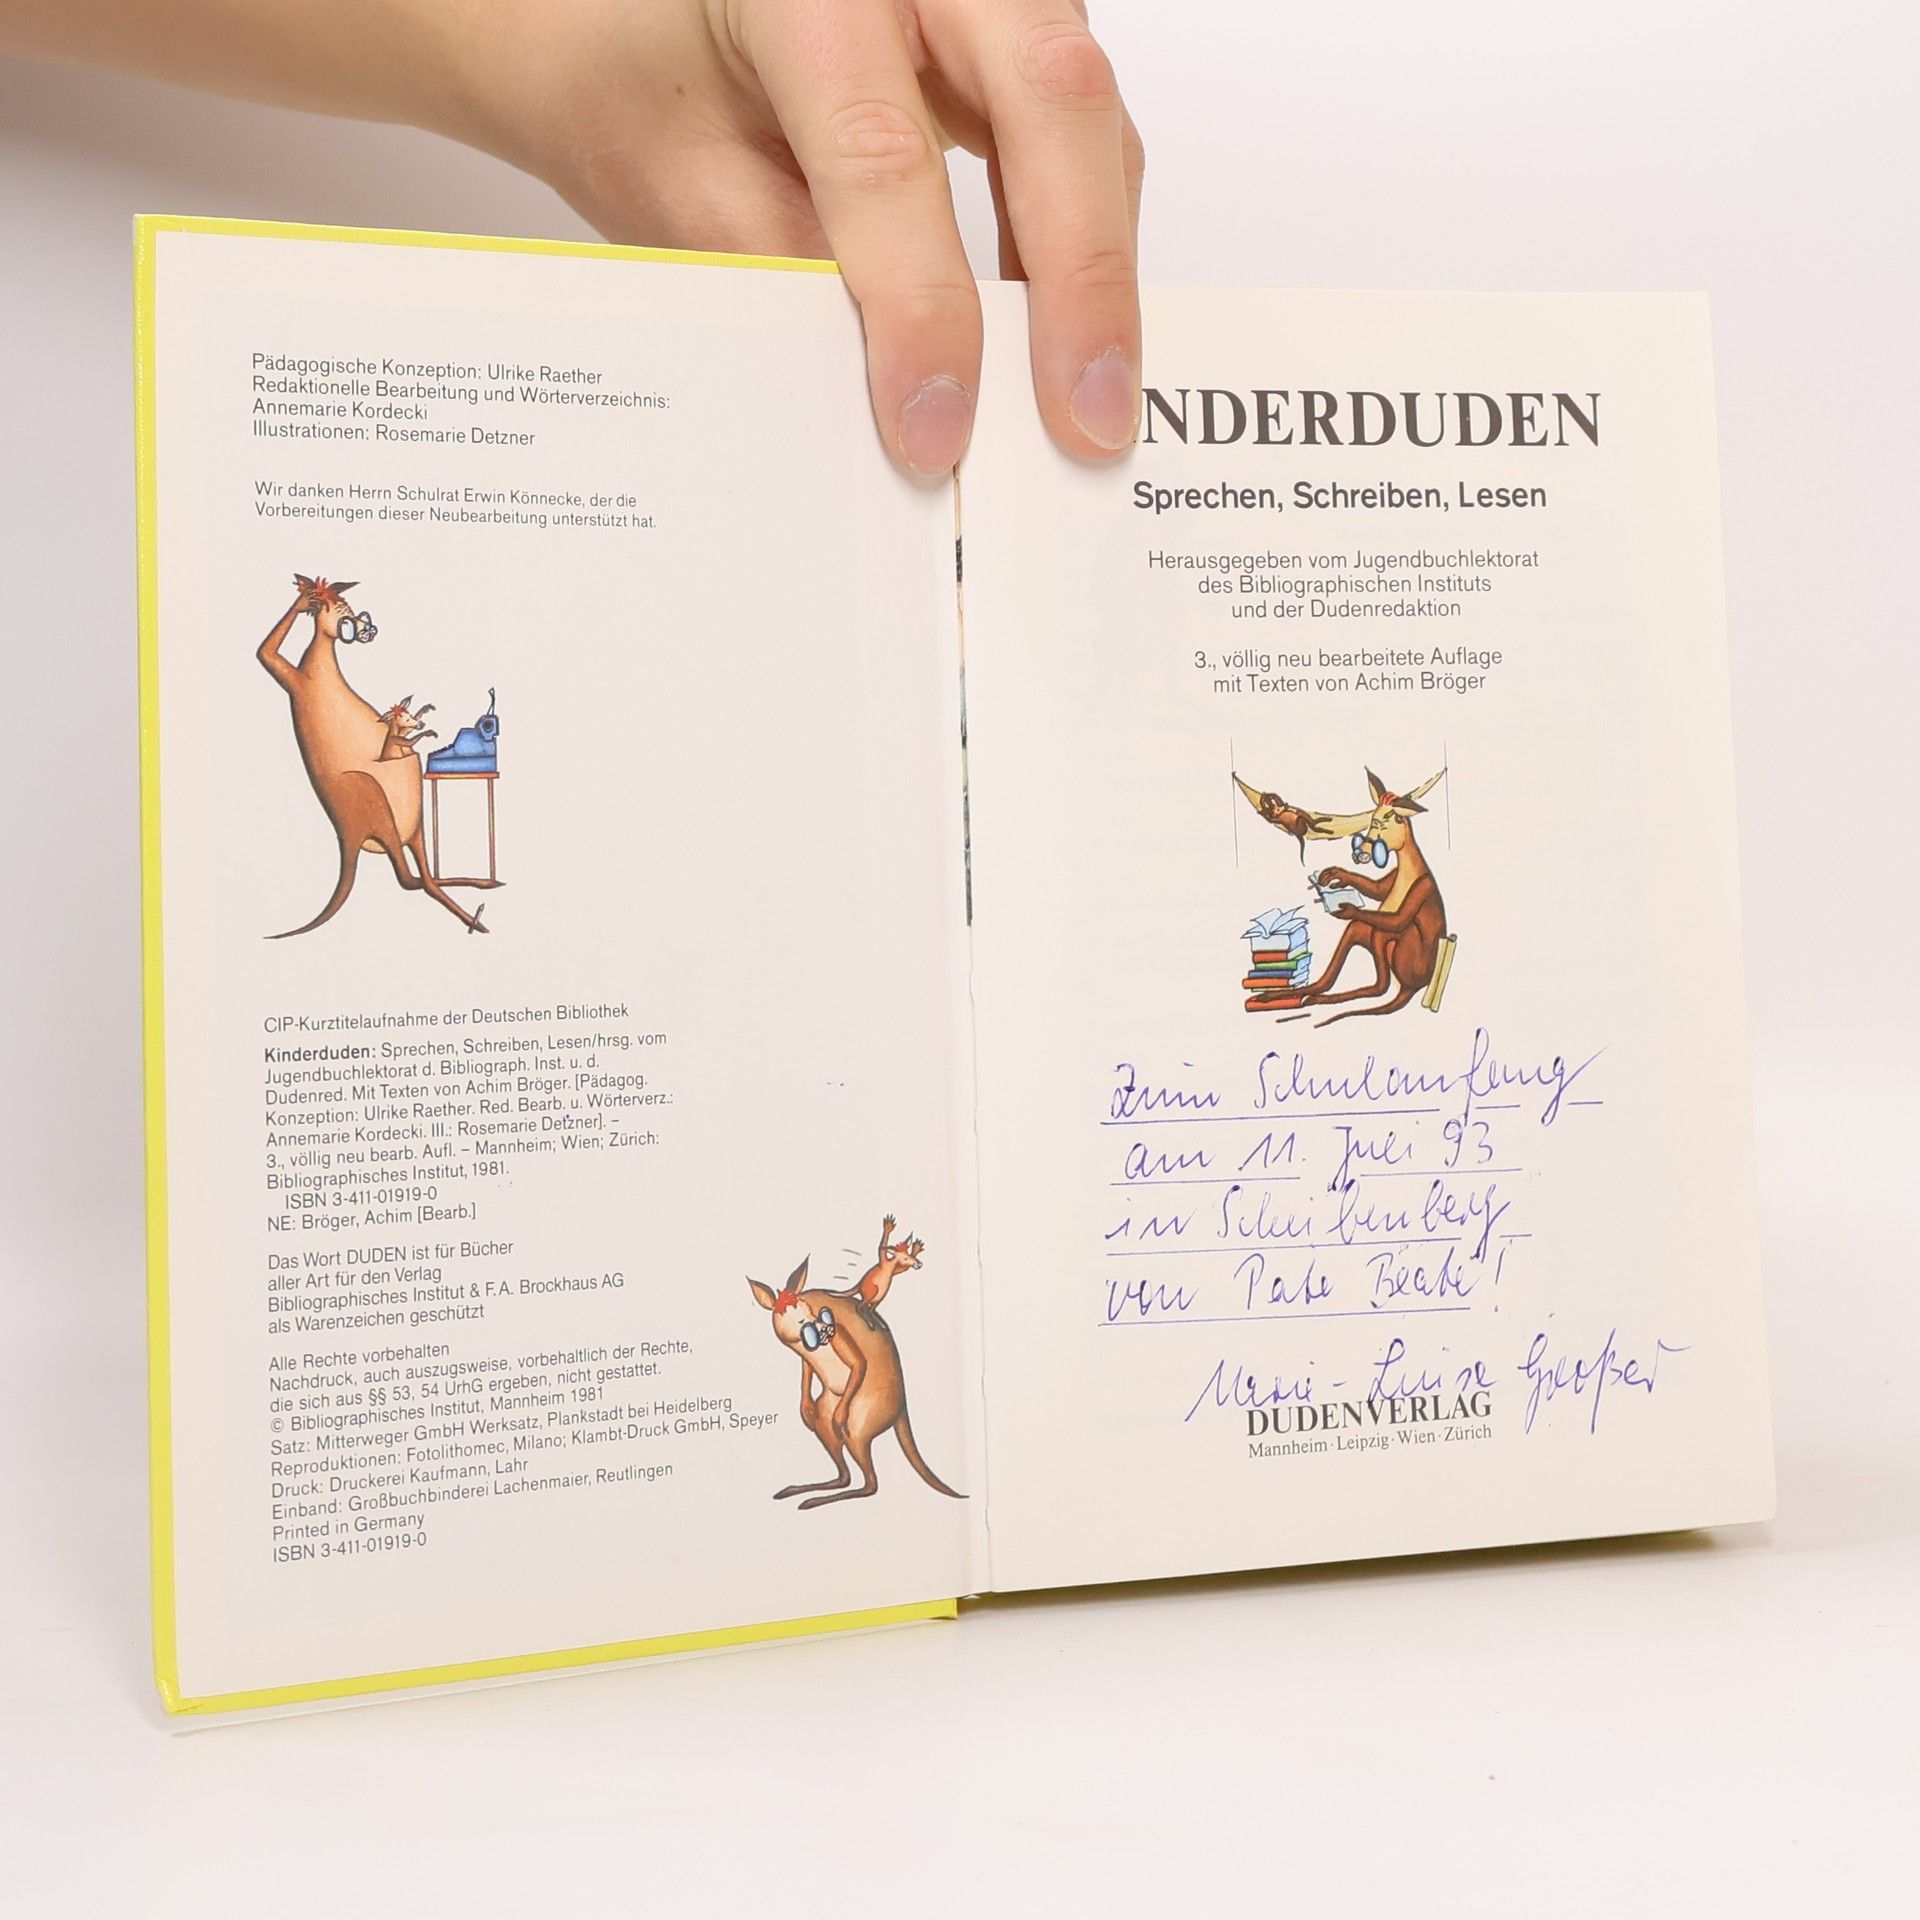 Pädagogische Konzeption: Ulrike Raether
Redaktionelle Bearbeitung und Wörterverzeichnis:
Annemarie Kordecki
Illustrationen: Rosemarie Detzner
Wir danken Herrn Schulrat Erwin Könnecke, der die
Vorbereitungen dieser Neubearbeitung unterstützt hat.
CIP-Kurztitelaufnahme der Deutschen Bibliothek
Kinderduden: Sprechen, Schreiben, Lesen/hrsg. vom
Jugendbuchlektorat d. Bibliograph. Inst. u. d.
Dudenred. Mit Texten von Achim Bröger. [Pädagog.
Konzeption: Ulrike Raether. Red. Bearb. u. Wörterverz.:
Annemarie Kordecki. Ill.: Rosemarie Detzner]. –
3., völlig neu bearb. Aufl. – Mannheim; Wien; Zürich:
Bibliographisches Institut, 1981.
ISBN 3-411-01919-0
NE: Bröger, Achim [Bearb.]
Das Wort DUDEN ist für Bücher
aller Art für den Verlag
Bibliographisches Institut & F.A. Brockhaus AG
als Warenzeichen geschützt
Alle Rechte vorbehalten
Nachdruck, auch auszugsweise, vorbehaltlich der Rechte,
die sich aus §§ 53, 54 UrhG ergeben, nicht gestattet.
© Bibliographisches Institut, Mannheim 1981
Satz: Mitterweger GmbH Werksatz, Plankstadt bei Heidelberg
Reproduktionen: Fotolithomec, Milano; Klambt-Druck GmbH, Speyer
Druck: Druckerei Kaufmann, Lahr
Einband: Großbuchbinderei Lachenmaier, Reutlingen
Printed in Germany
ISBN 3-411-01919-0
NDERDUDEN
Sprechen, Schreiben, Lesen
Herausgegeben vom Jugendbuchlektorat
des Bibliographischen Instituts
und der Dudenredaktion
3., völlig neu bearbeitete Auflage
mit Texten von Achim Bröger
Zum Schulanfang
am 11. Juli 93
in Scheibenberg
von Pate Beate!
Marie-Luise Großer
DUDENVERLAG
Mannheim · Leipzig · Wien · Zürich